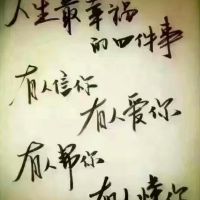 人生最幸福
的四件事
有人信你
有人爱你
有人帮你
有人
你